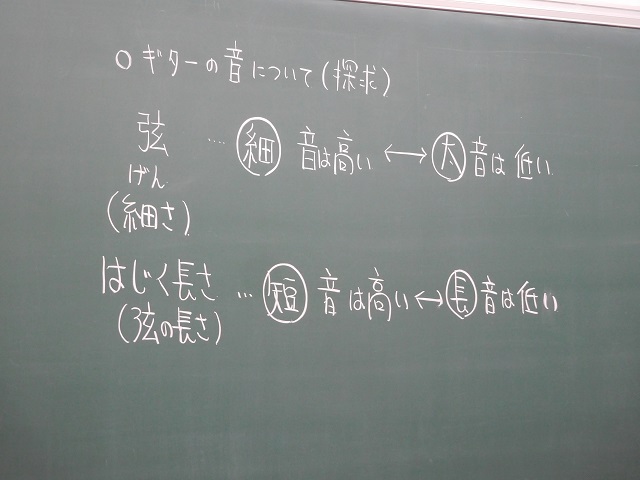 ○ギターの音について(探求)
弦 … 細 音は高い ↔ 太 音は低い
げん
(細さ)
はじく長さ … 短 音は高い ↔ 長 音は低い
(弦の長さ)